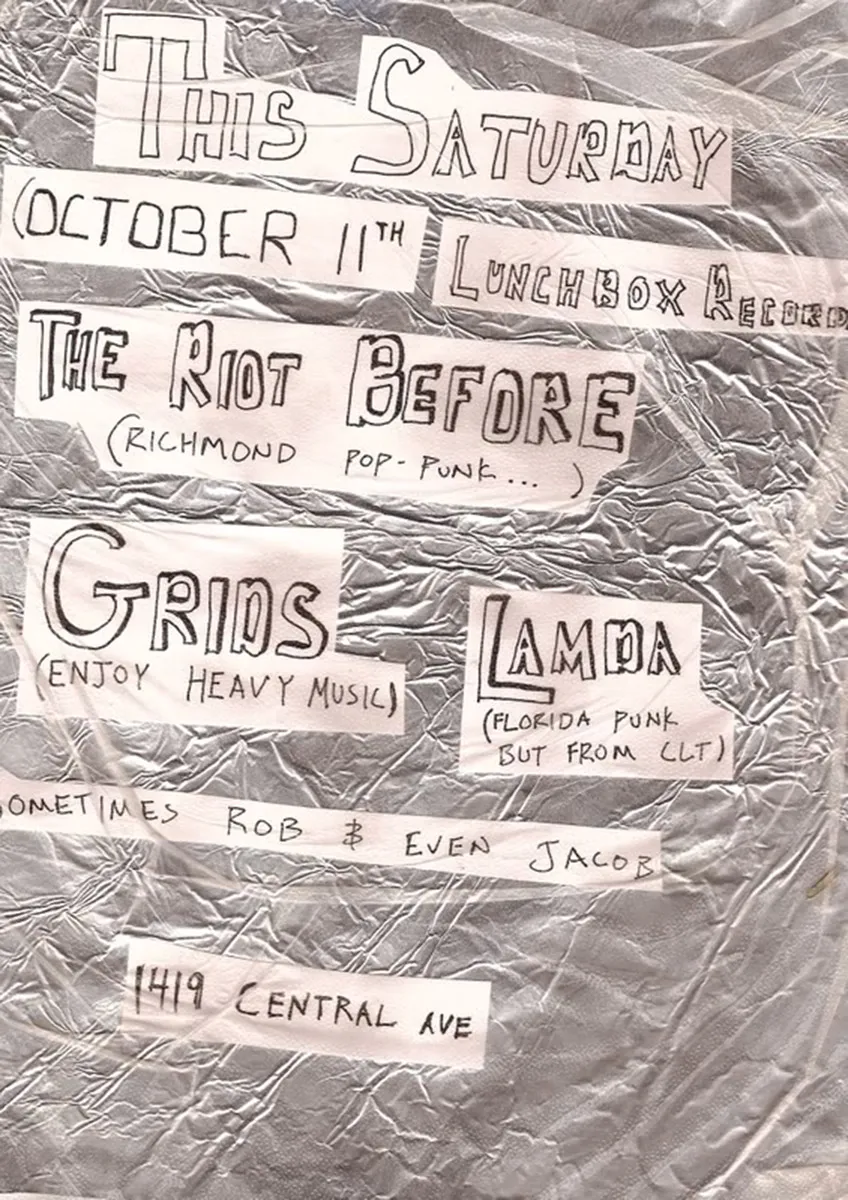 THIS SATURDAY
(OCTOBER 11TH
LUNCHBOX RECORD
THE RIOT BEFORE
(RICHMOND POP-PUNK... )
GRIDS
(ENJOY HEAVY MUSIC)
LAMDA
(FLORIDA PUNK
BUT FROM CLT)
SOMETIMES ROB & EVEN JACOB
1419 CENTRAL AVE